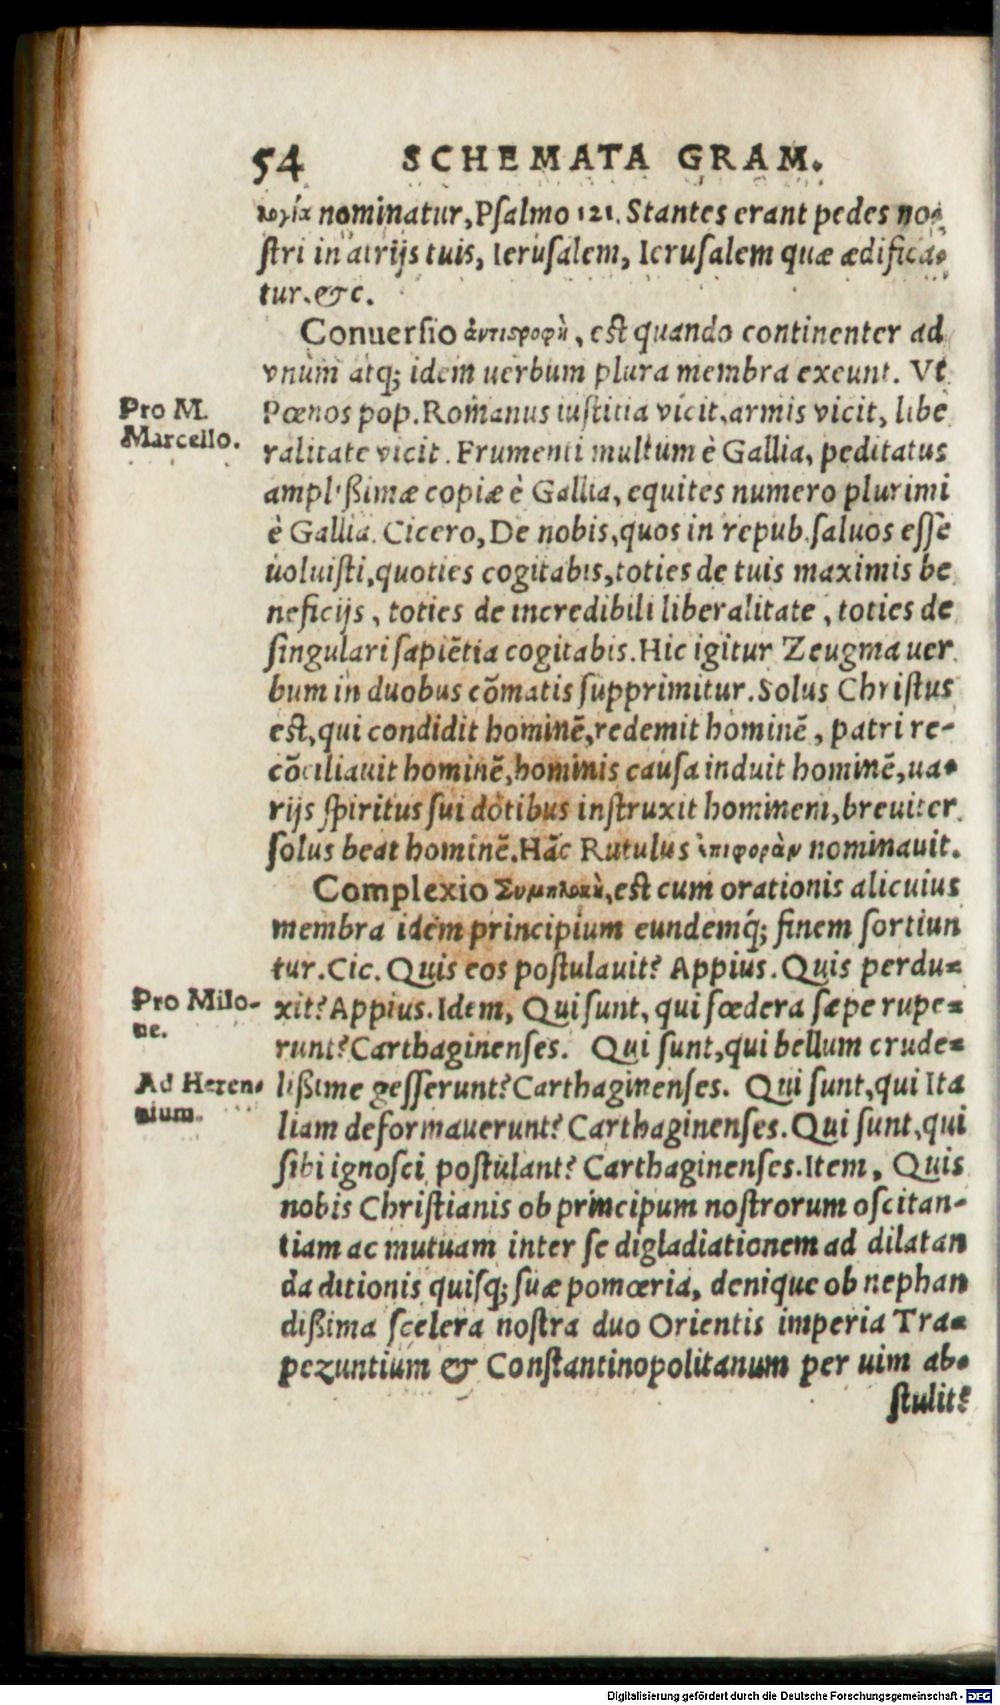 54 SCHEMATA GRAM.
λογία nominatur, Psalmo 121. Stantes erant pedes no-
stri in atrijs tuis, Ierusalem, Ierusalem quæ ædifica-
tur. &c.
Conuersio ἀντιστροφὴ, est quando continenter ad
vnum atq; idem uerbum plura membra exeunt. Vt
Pro M.
Marcello.
Pœnos pop. Romanus iustitia vicit, armis vicit, libe
ralitate vicit. Frumenti multum è Gallia, peditatus
amplißimæ copiæ è Gallia, equites numero plurimi
è Gallia. Cicero, De nobis, quos in repub. saluos esse
uoluisti, quoties cogitabis, toties de tuis maximis be
neficijs, toties de incredibili liberalitate, toties de
singulari sapiẽtia cogitabis. Hic igitur Zeugma uer
bum in duobus cõmatis supprimitur. Solus Christus
est, qui condidit hominẽ, redemit hominẽ, patri re-
cõciliauit hominẽ, hominis causa induit hominẽ, ua-
rijs spiritus sui dotibus instruxit hominem, breuiter
solus beat hominẽ. Hãc Rutulus ἐπιφορὰν nominauit.
Complexio Συμπλοκὴ, est cum orationis alicuius
membra idem principium eundemq́; finem sortiun
tur. Cic. Quis eos postulauit? Appius. Quis perdu-
Pro Milo-
ne.
xit? Appius. Idem, Qui sunt, qui fœdera sæpe rupe-
runt? Carthaginenses. Qui sunt, qui bellum crude-
Ad Heren-
nium.
lißime gesserunt? Carthaginenses. Qui sunt, qui Ita
liam deformauerunt? Carthaginenses. Qui sunt, qui
sibi ignosci postulant? Carthaginenses. Item, Quis
nobis Christianis ob principum nostrorum oscitan-
tiam ac mutuam inter se digladiationem ad dilatan
da ditionis quisq; suæ pomœria, denique ob nephan
dißima scelera nostra duo Orientis imperia Tra-
pezuntium & Constantinopolitanum per uim ab-
stulit?
Digitalisierung gefördert durch die Deutsche Forschungsgemeinschaft - DFG